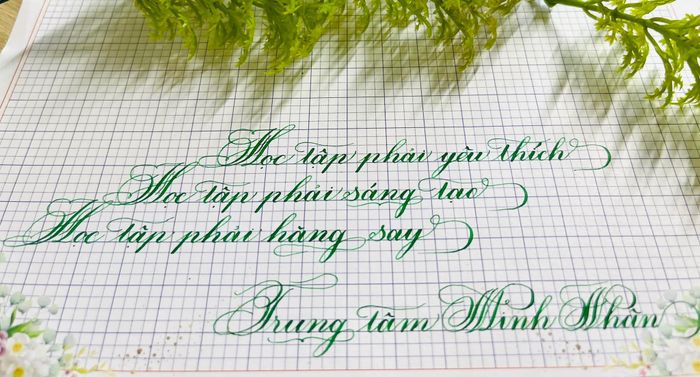 Học tập phải yêu thích
Học tập phải sáng tạo
Học tập phải hăng say
Trung tâm Minh Nhân